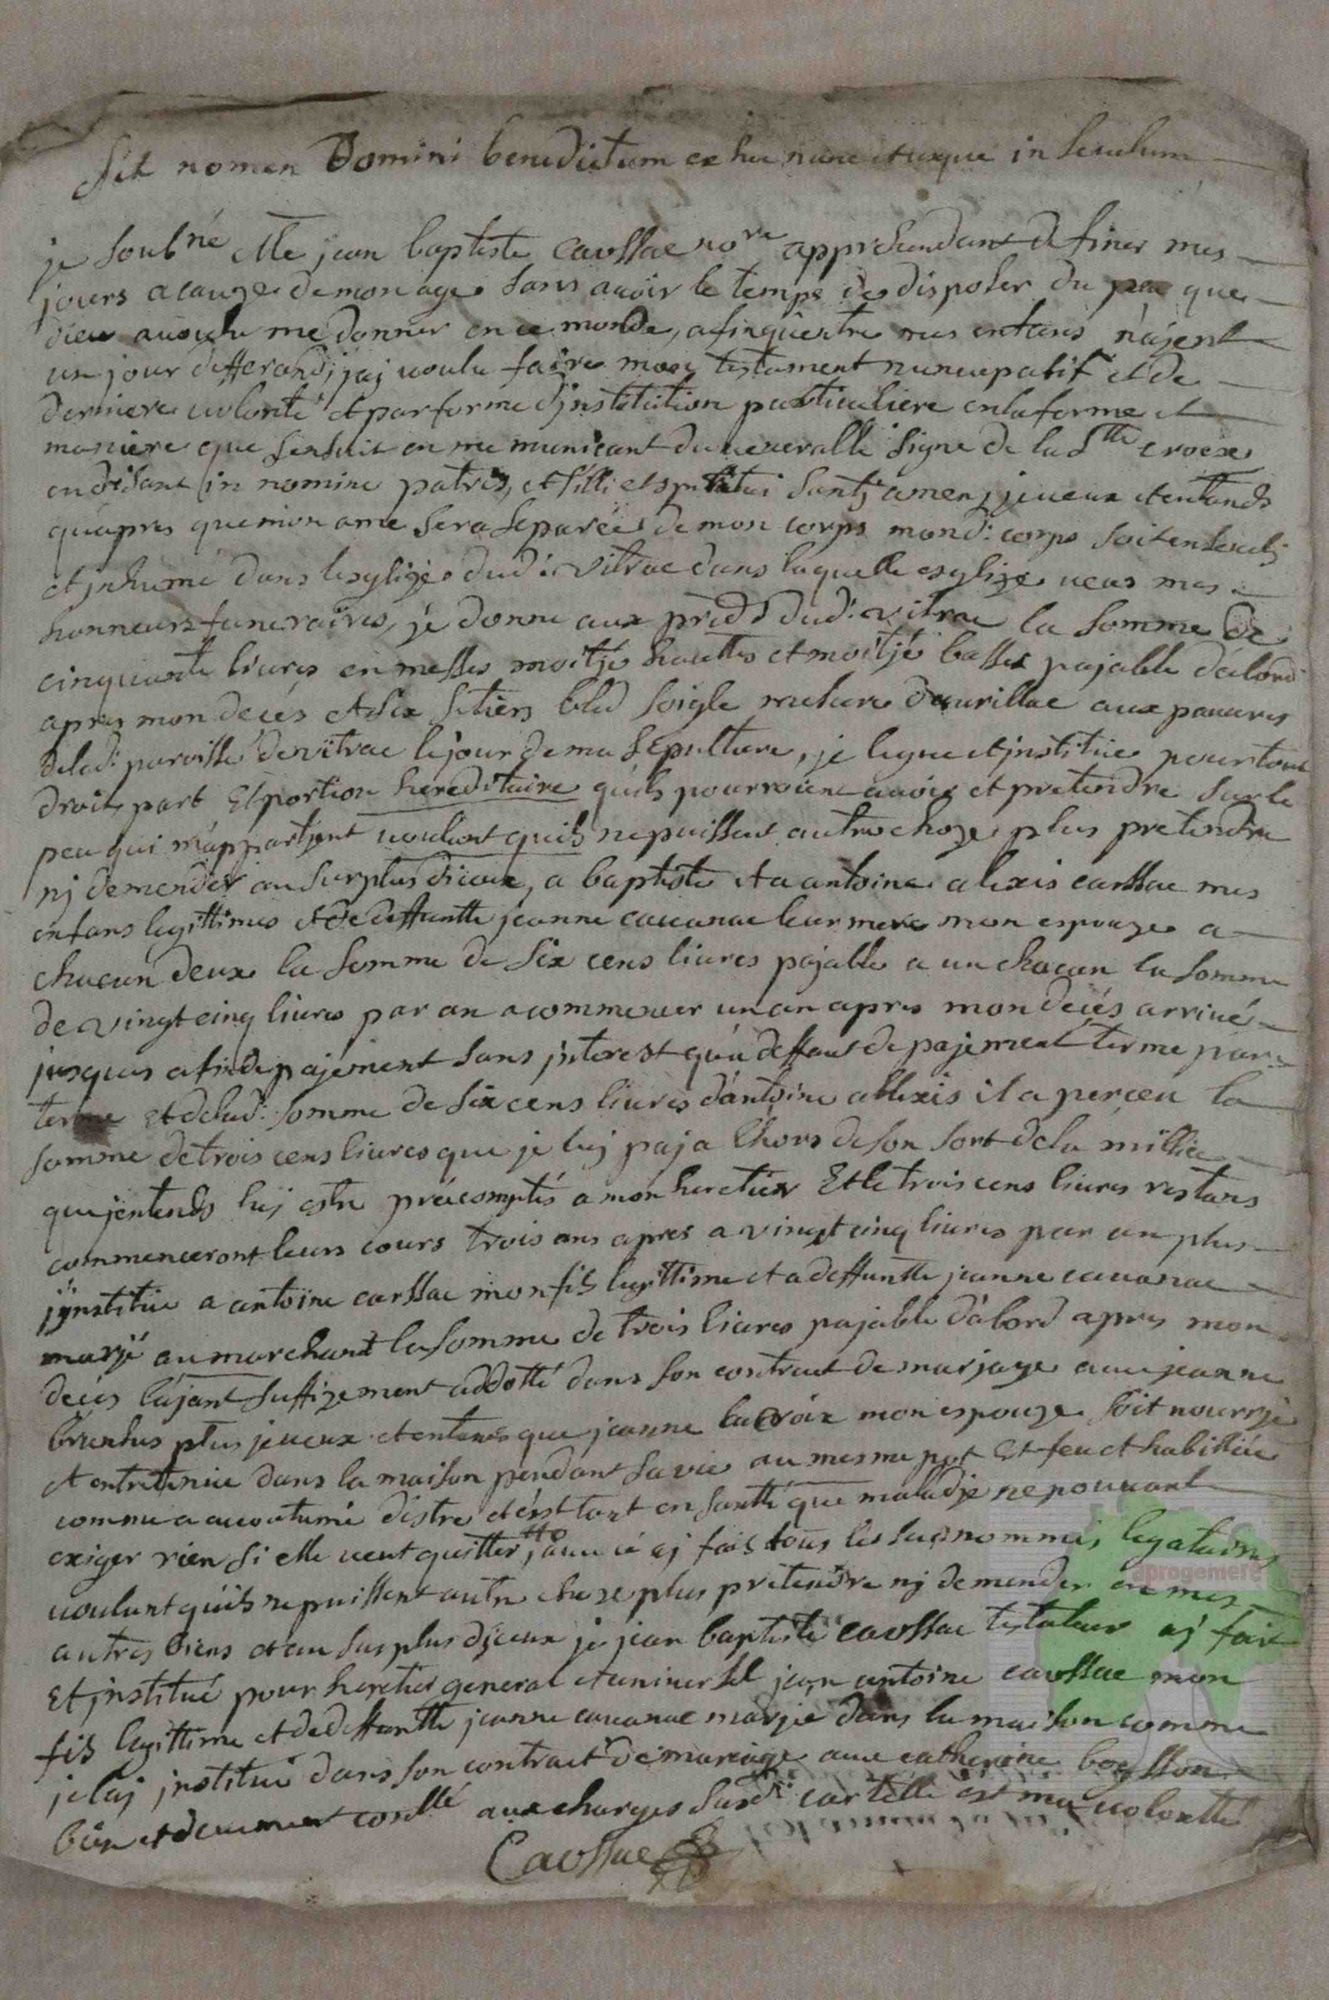 Sit nomen Domini benedictum ex hoc nunc et usque in seculum
je soubné Me jean baptiste Caussac nore apprehendant de finer mes
jours a cauze de mon age sans avoir le temps de disposer du peu que
dieu a voulu me donner en ce monde, afin quentre mes enfans n'ajent
un jour differand, j'aj voulu faire mon testament nuncupatif et de
derniere volonté et par forme d'jnstitution particuliere en la forme et
maniere que sensuit en me municant du venerable signe de la Ste croix
en disant in nomine patris, et filii et spiritui Santj amen, je veux et entends
qu'apres que mon ame sera separée de mon corps mond: corps soit enseveli
et jnhumé dans lesglize dud: Vitrac dans laquelle esglize veus mes
honneurs funeraires, je donne aux pred dud: vitrac la somme de
cinquante livres en messes moitjé hauttes et moitjé basses pajable d'abord
apres mon decés et six setiers bled soigle mesure d'aurillac aux pauvres
delad: paroisse de vitrac le jour de ma sepulture, je legue et jnstitüe pour tout
droit, part Et portion hereditaire qu'ils pourroient avoir et pretendre sur le
peu qui m'appartjent voulant quils ne puissent autre choze plus pretendre
nj demender au surplus d'iceux, a baptiste et a antoine alexis caussac mes
enfans legittimes et de deffuntte jeanne cavanac leur mere mon espouze a
chacun deux la somme de six cens livres pajable a un chacun la somme
de vingt cinq livres par an a commencer un an apres mon decés arrivé
jusques a fin de pajement sans jnterest qu'a deffaut de pajement terme par
terme Et delad: somme de six cens livres d'antoine allexis il a perceu la
somme de trois cens livres que je luj paja lhors de son sort de la millice
que j'entends luj estre précomptés a mon heretier Et le trois cens livres restans
commenceront leurs cours trois ans apres a vingt cinq livres par an plus
jjnstitüe a antoine caussac mon fils legittime et a deffuntte jeanne cavanac
marjé au marchant la somme de trois livres pajable d'abord apres mon
decés l'ajant suffizement addotté dans son contract de marjage avec jeanne
bruhus plus je veux et entens que jeanne lacroix mon espouze soit nourrje
et entretenüe dans la maison pendant sa vie au mesme pot Et feu et habillée
comme a accoutumé d'estre et c'est tant en santté que maladje ne pouvant
exiger rien si elle veut quitter, avec cé aj fais tous les susnommés legataires
voulant qu'ils ne puissent autre choze plus pretendre nj demender en mes
autres biens et au surplus d'jceux je jean baptiste caussac testateur aj fait
Et jnstitué pour heretier general et universel jean antoine caussac mon
fils legittime et de deffuntte jeanne cavanac marjé dans la maison comme
je laj jnstitué dans son contract de mariage avec catherine boysson
bien et deument aux charges susd: car telle est ma volontté
Caussac
aprogemere